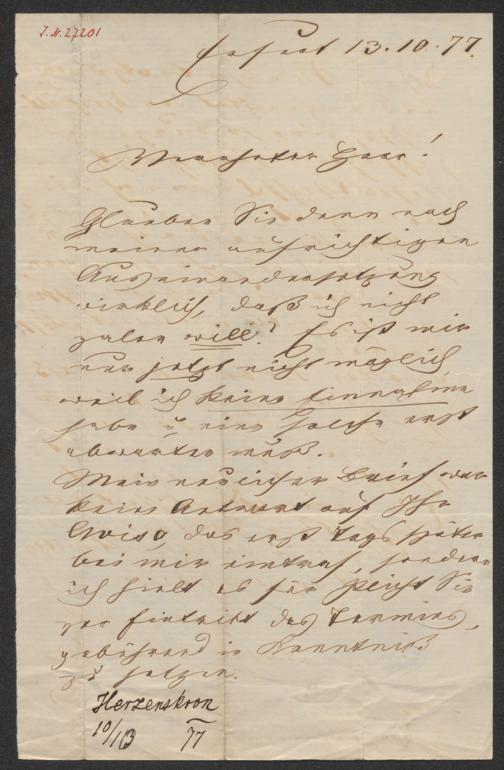 J.N. 27201
Erfurt 13.10.77.
Verehrter Herr!
Glauben Sie denn nach
meiner aufrichtigen
Auseinandersetzung
wirklich, daß ich nicht
zalen will? Es ist mir
nur jetzt nicht möglich
weil ich keine Einnahme
habe u eine solche erst
abwarten muß.
Mein neulicher Brief war
keine Antwort auf Ihr
Aviso, das erst Tags später
bei mir eintraf, sondern
ich hielt es für Pflicht Sie
vor Eintritt des Termins,
gebührend in Kenntniß
zu setzen.
Herzenskron
10/13 77